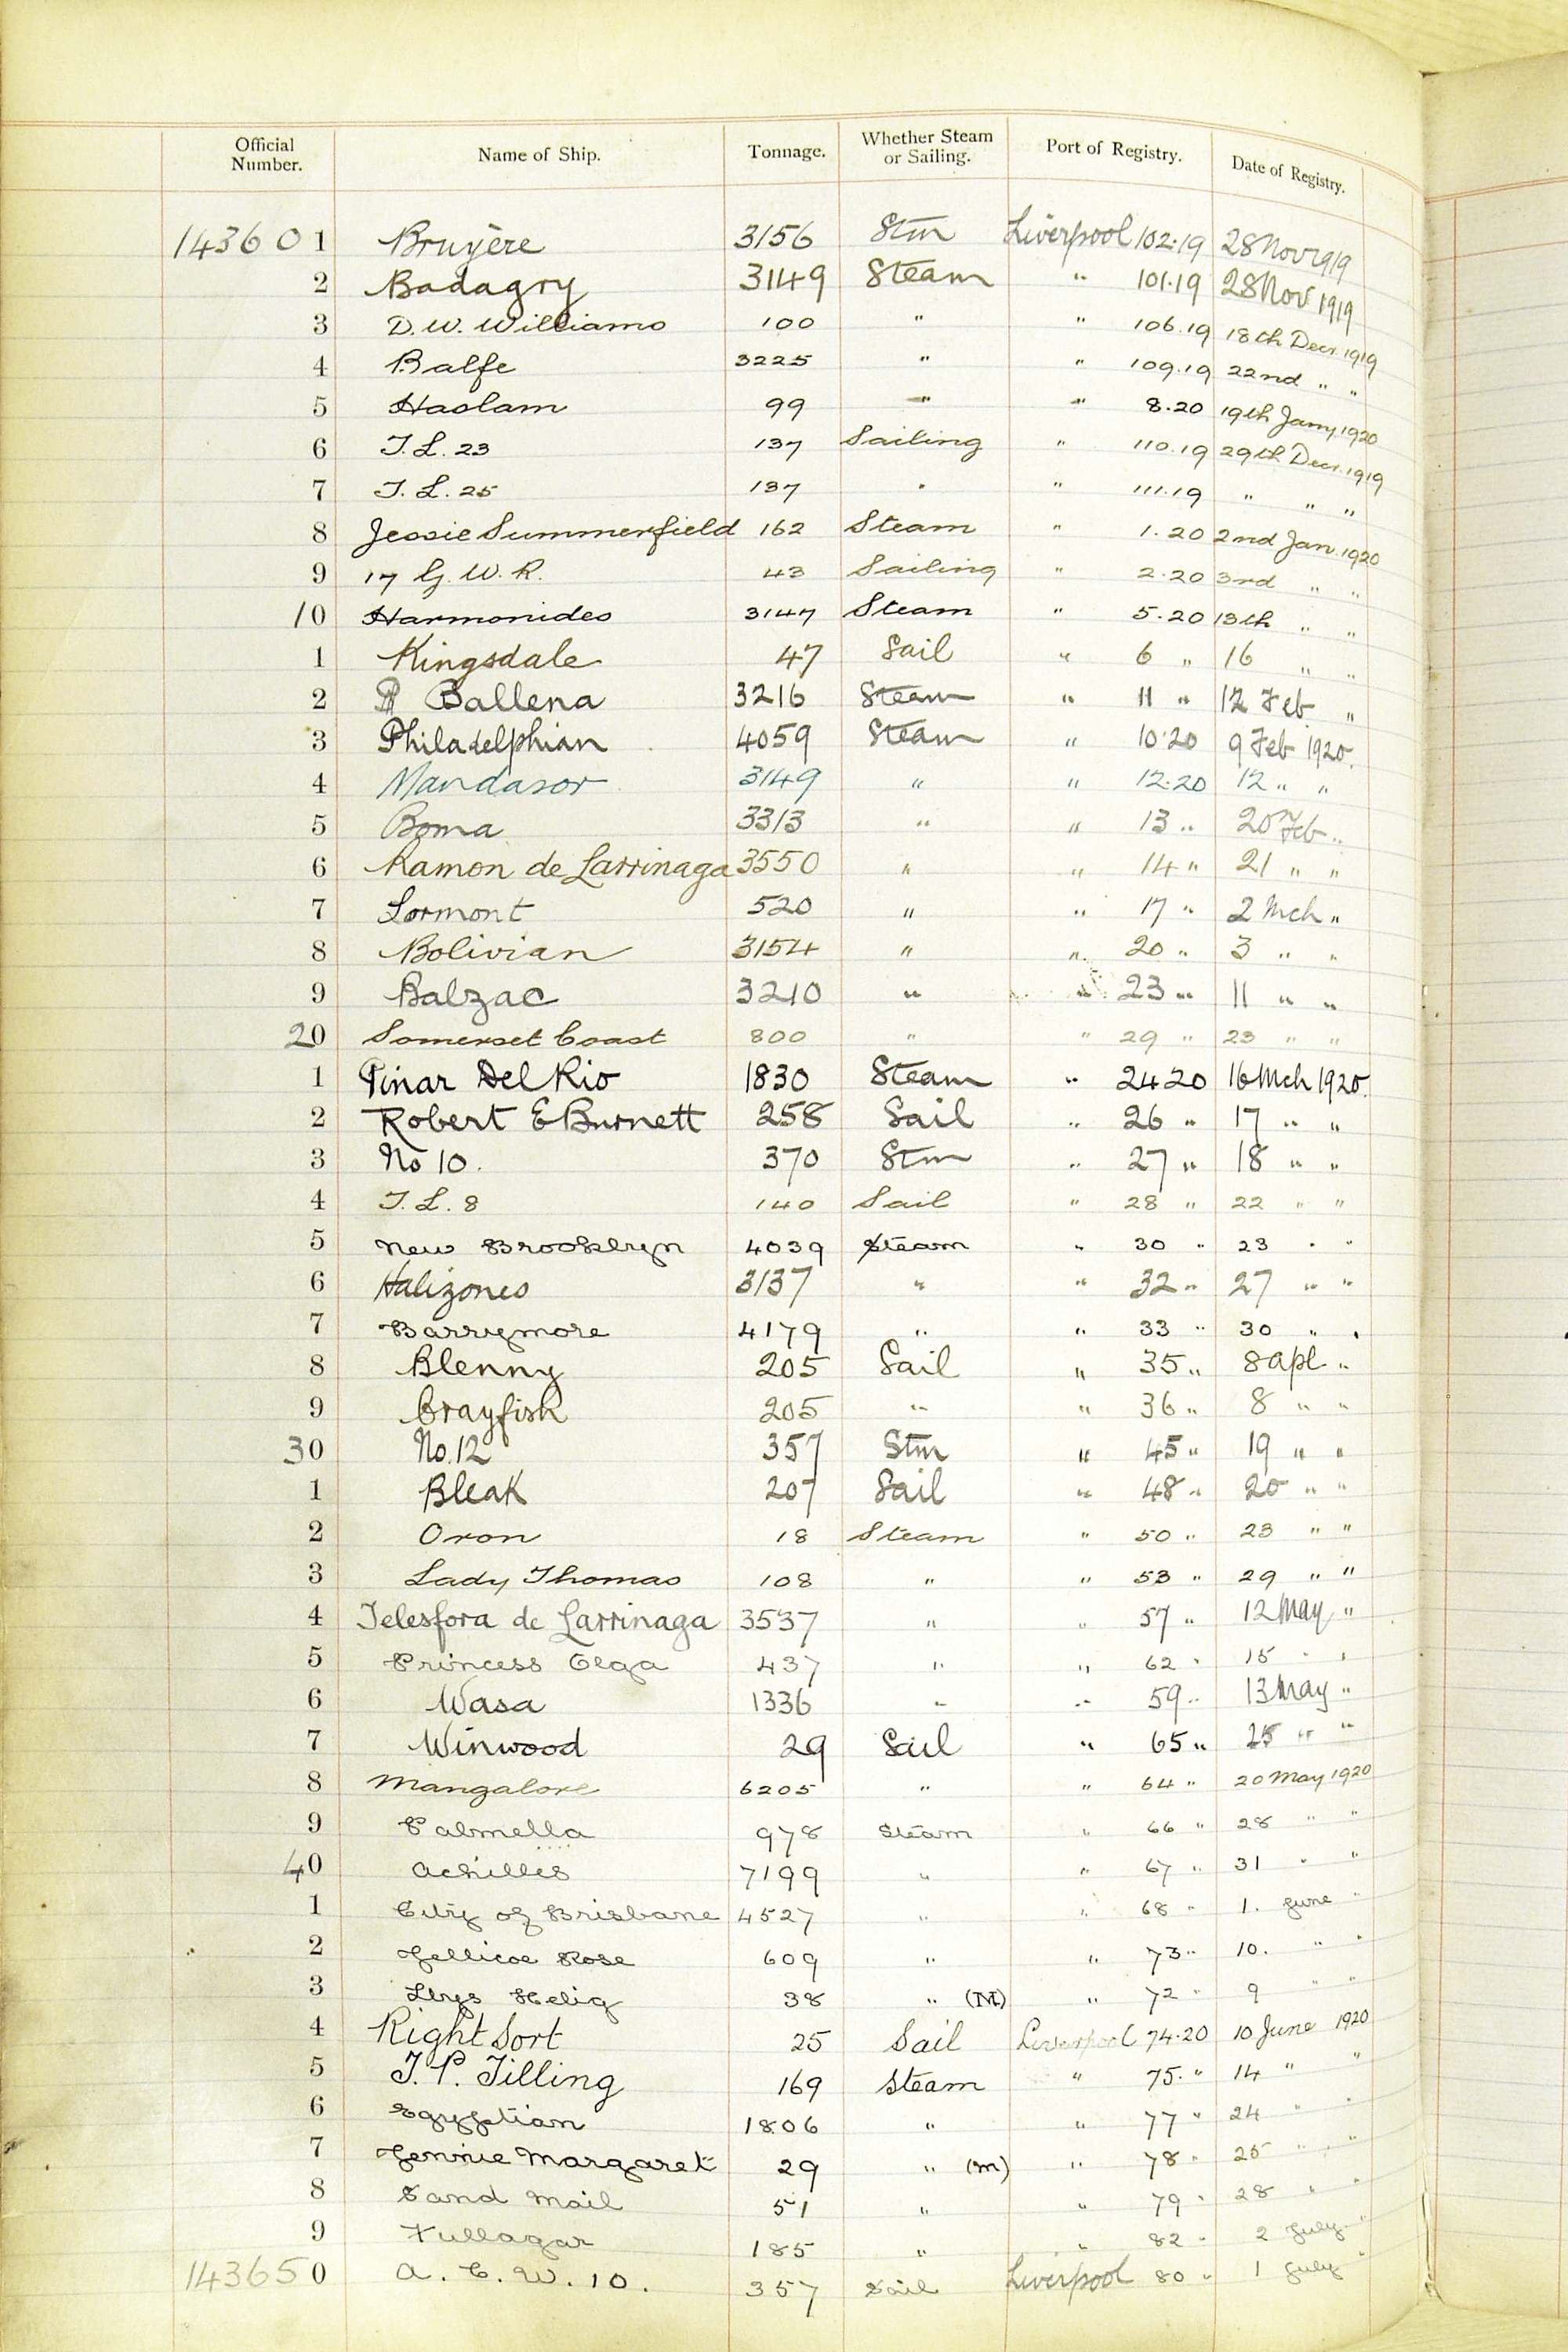 Official Number. Name of Ship. Tonnage. Whether Steam or Sailing. Port of Registry. Date of Registry.
143601 Bruyère 3156 Stm Liverpool 102.19 28 Nov 1919
2 Badagry 3149 Steam " 101.19 28 Nov 1919
3 D. W. Williams 100 " " 106.19 18th Decr. 1919
4 Balfe 3225 " " 109.19 22nd " "
5 Haslam 99 " " 8.20 19th Jany. 1920
6 T. L. 23 137 Sailing " 110.19 29th Decr. 1919
7 T. L. 25 137 " " 111.19 " " "
8 Jessie Summerfield 162 Steam " 1.20 2nd Jan. 1920
9 17 G. W. R. 43 Sailing " 2.20 3rd " "
10 Harmonides 3147 Steam " 5.20 13th " "
1 Kingsdale 47 Sail " 6 " 16 " "
2 Ballena 3216 Steam " 11 " 12 Feb "
3 Philadelphian 4059 Steam " 10.20 9 Feb 1920.
4 Mandasor 3149 " " 12.20 12 " "
5 Boma 3313 " " 13 " 20 Feb "
6 Ramon de Larrinaga 3550 " " 14 " 21 " "
7 Lormont 520 " " 17 " 2 Mch "
8 Bolivian 3154 " " 20 " 3 " "
9 Balzac 3210 " " 23 " 11 " "
20 Somerset Coast 800 " " 29 " 23 " "
1 Pinar Del Rio 1830 Steam " 24 20 16 Mch 1920.
2 Robert E Burnett 258 Sail " 26 " 17 " "
3 No 10. 370 Stm " 27 " 18 " "
4 T. L. 8 140 Sail " 28 " 22 " "
5 New Brooklyn 4039 Steam " 30 " 23 " "
6 Halizones 3137 " " 32 " 27 " "
7 Barrymore 4179 " " 33 " 30 " "
8 Blenny 205 Sail " 35 " 8 Apl "
9 Crayfish 205 " " 36 " 8 " "
30 No. 12 357 Stm " 45 " 19 " "
1 Bleak 207 Sail " 48 " 20 " "
2 Oron 18 Steam " 50 " 23 " "
3 Lady Thomas 108 " " 53 " 29 " "
4 Telesfora de Larrinaga 3537 " " 57 " 12 May "
5 Princess Olga 437 " " 62 " 15 " "
6 Wasa 1336 " " 59 " 13 May "
7 Winwood 29 Sail " 65 " 25 " "
8 Mangalore 6205 " " 64 " 20 May 1920
9 Palmella 978 Steam " 66 " 28 " "
40 Achilles 7199 " " 67 " 31 " "
1 City of Brisbane 4527 " " 68 " 1. June "
2 Jellicoe Rose 609 " " 73 " 10. " "
3 Llys Helig 38 " (M) " 72 " 9 " "
4 Right Sort 25 Sail Liverpool 74.20 10 June 1920
5 T. P. Tilling 169 Steam " 75. " 14 " "
6 Egyptian 1806 " " 77 " 24 " "
7 Jennie Margaret 29 " (M) " 78 " 25 " "
8 Sand Mail 51 " " 79 " 28 " "
9 Fullagar 185 " " 82 " 2 July "
143650 A. C. W. 10. 357 Sail Liverpool 80 " 1 July "